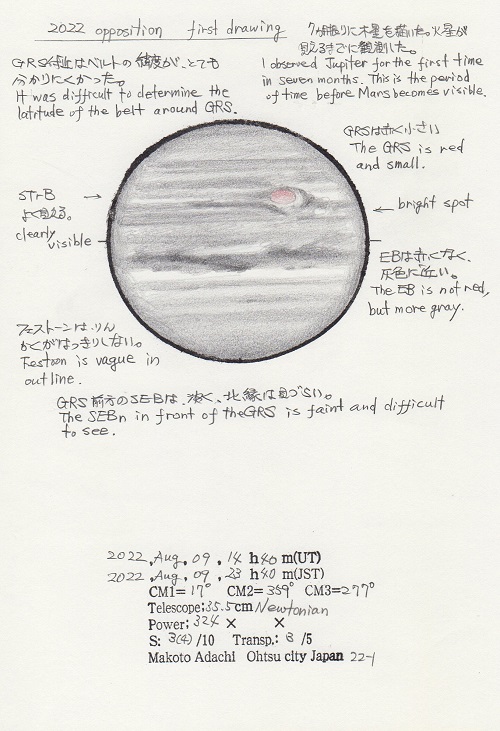 2022 opposition first drawing
7ヶ月振りに木星を描いた。火星が
見えるまでに観測した。
I observed Jupiter for the first time
in seven months. This is the period
of time before Mars becomes visible.
GRS付近はベルトの緯度が、とても
分かりにくかった。
It was difficult to determine the
latitude of the belt around GRS.
GRSは赤く小さい
The GRS is red
and small.
STrB →
よく見える。
clearly
visible
← bright spot
EBは赤くなく、
灰色に近い。
The EB is not red,
but more gray.
フェストーンは、りん
かくがはっきりしない。
Festoon is vague in
outline.
GRS前方のSEBは、淡く、北縁は見づらい。
The SEBn in front of the GRS is faint and difficult
to see.
2022, Aug, 09, 14 h 40 m(UT)
2022, Aug, 09, 23 h 40 m(JST)
CM1= 17° CM2= 359° CM3=277°
Telescope; 35.5cm Newtonian
Power; 324 × ×
S: 3(4) /10 Transp.: 3 /5
Makoto Adachi Ohtsu city Japan 22-1